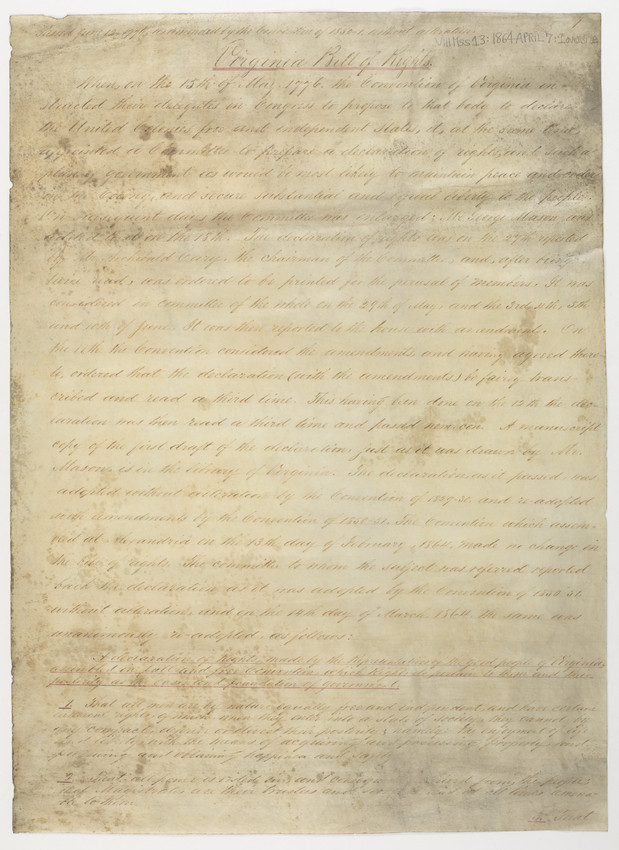 by the Convention of
VIII Mss 13: 1864 APRIL 7
1
Virginia Bill of Rights.
When, on the 15th of May, 1776, the Convention of Virginia in-
structed their delegates in Congress to propose to that body to declare
the United Colonies free and independent States, it, at the same time
appointed a Committee to prepare a declaration of rights, and such a
plan of government as would be most likely to maintain peace and order
in the Colony, and secure substantial and equal liberty to the people.
On subsequent days the Committee was enlarged; Mr. George Mason was
added to it on the 18th. The declaration of rights was on the 27th reported
by Mr. Archibald Cary, the chairman of the Committee, and, after being
twice read, was ordered to be printed for the perusal of members. It was
considered in committee of the whole on the 29th of May, and the 3rd, 4th, 5th
and 10th of June. It was then reported to the house with amendments. On
the 11th the Convention considered the amendments, and having agreed there-
to, ordered that the declaration (with the amendments) be fairly trans-
cribed and read a third time. This having been done on the 12th the dec-
laration was then read a third time and passed nem. con. A manuscript
copy of the first draft of the declaration, just as it was drawn by Mr.
Mason, is in the library of Virginia. The declaration as it passed was
adopted without alteration by the Convention of 1829-30 and re-adopted
with amendments by the Convention of 1850-51. The Convention which assem-
bled at Alexandria on the 13th day of February, 1864, made no change in
the bill of rights. The committee to whom the subject was referred reported
back the declaration as it was adopted by the Convention of 1850-51
without alteration, and on the day of March 1864 the same was
unanimously re-adopted as follows:
A declaration of Rights made by the Representatives of the good people of Virginia,
assembled in full and free Convention, which rights do pertain to them and their
posterity as the basis and foundation of government.
1. That all men are by nature equally free and independent, and have certain
inherent rights, of which, when they enter into a state of society, they cannot by
any compact, deprive or divest their posterity; namely, the enjoyment of life
and liberty, with the means of acquiring and possessing property, and
pursuing and obtaining happiness and safety.
2. That all power is vested in, and consequently derived from, the people;
that Magistrates are their trustees and servants, and at all times amena-
ble to them.
3. That